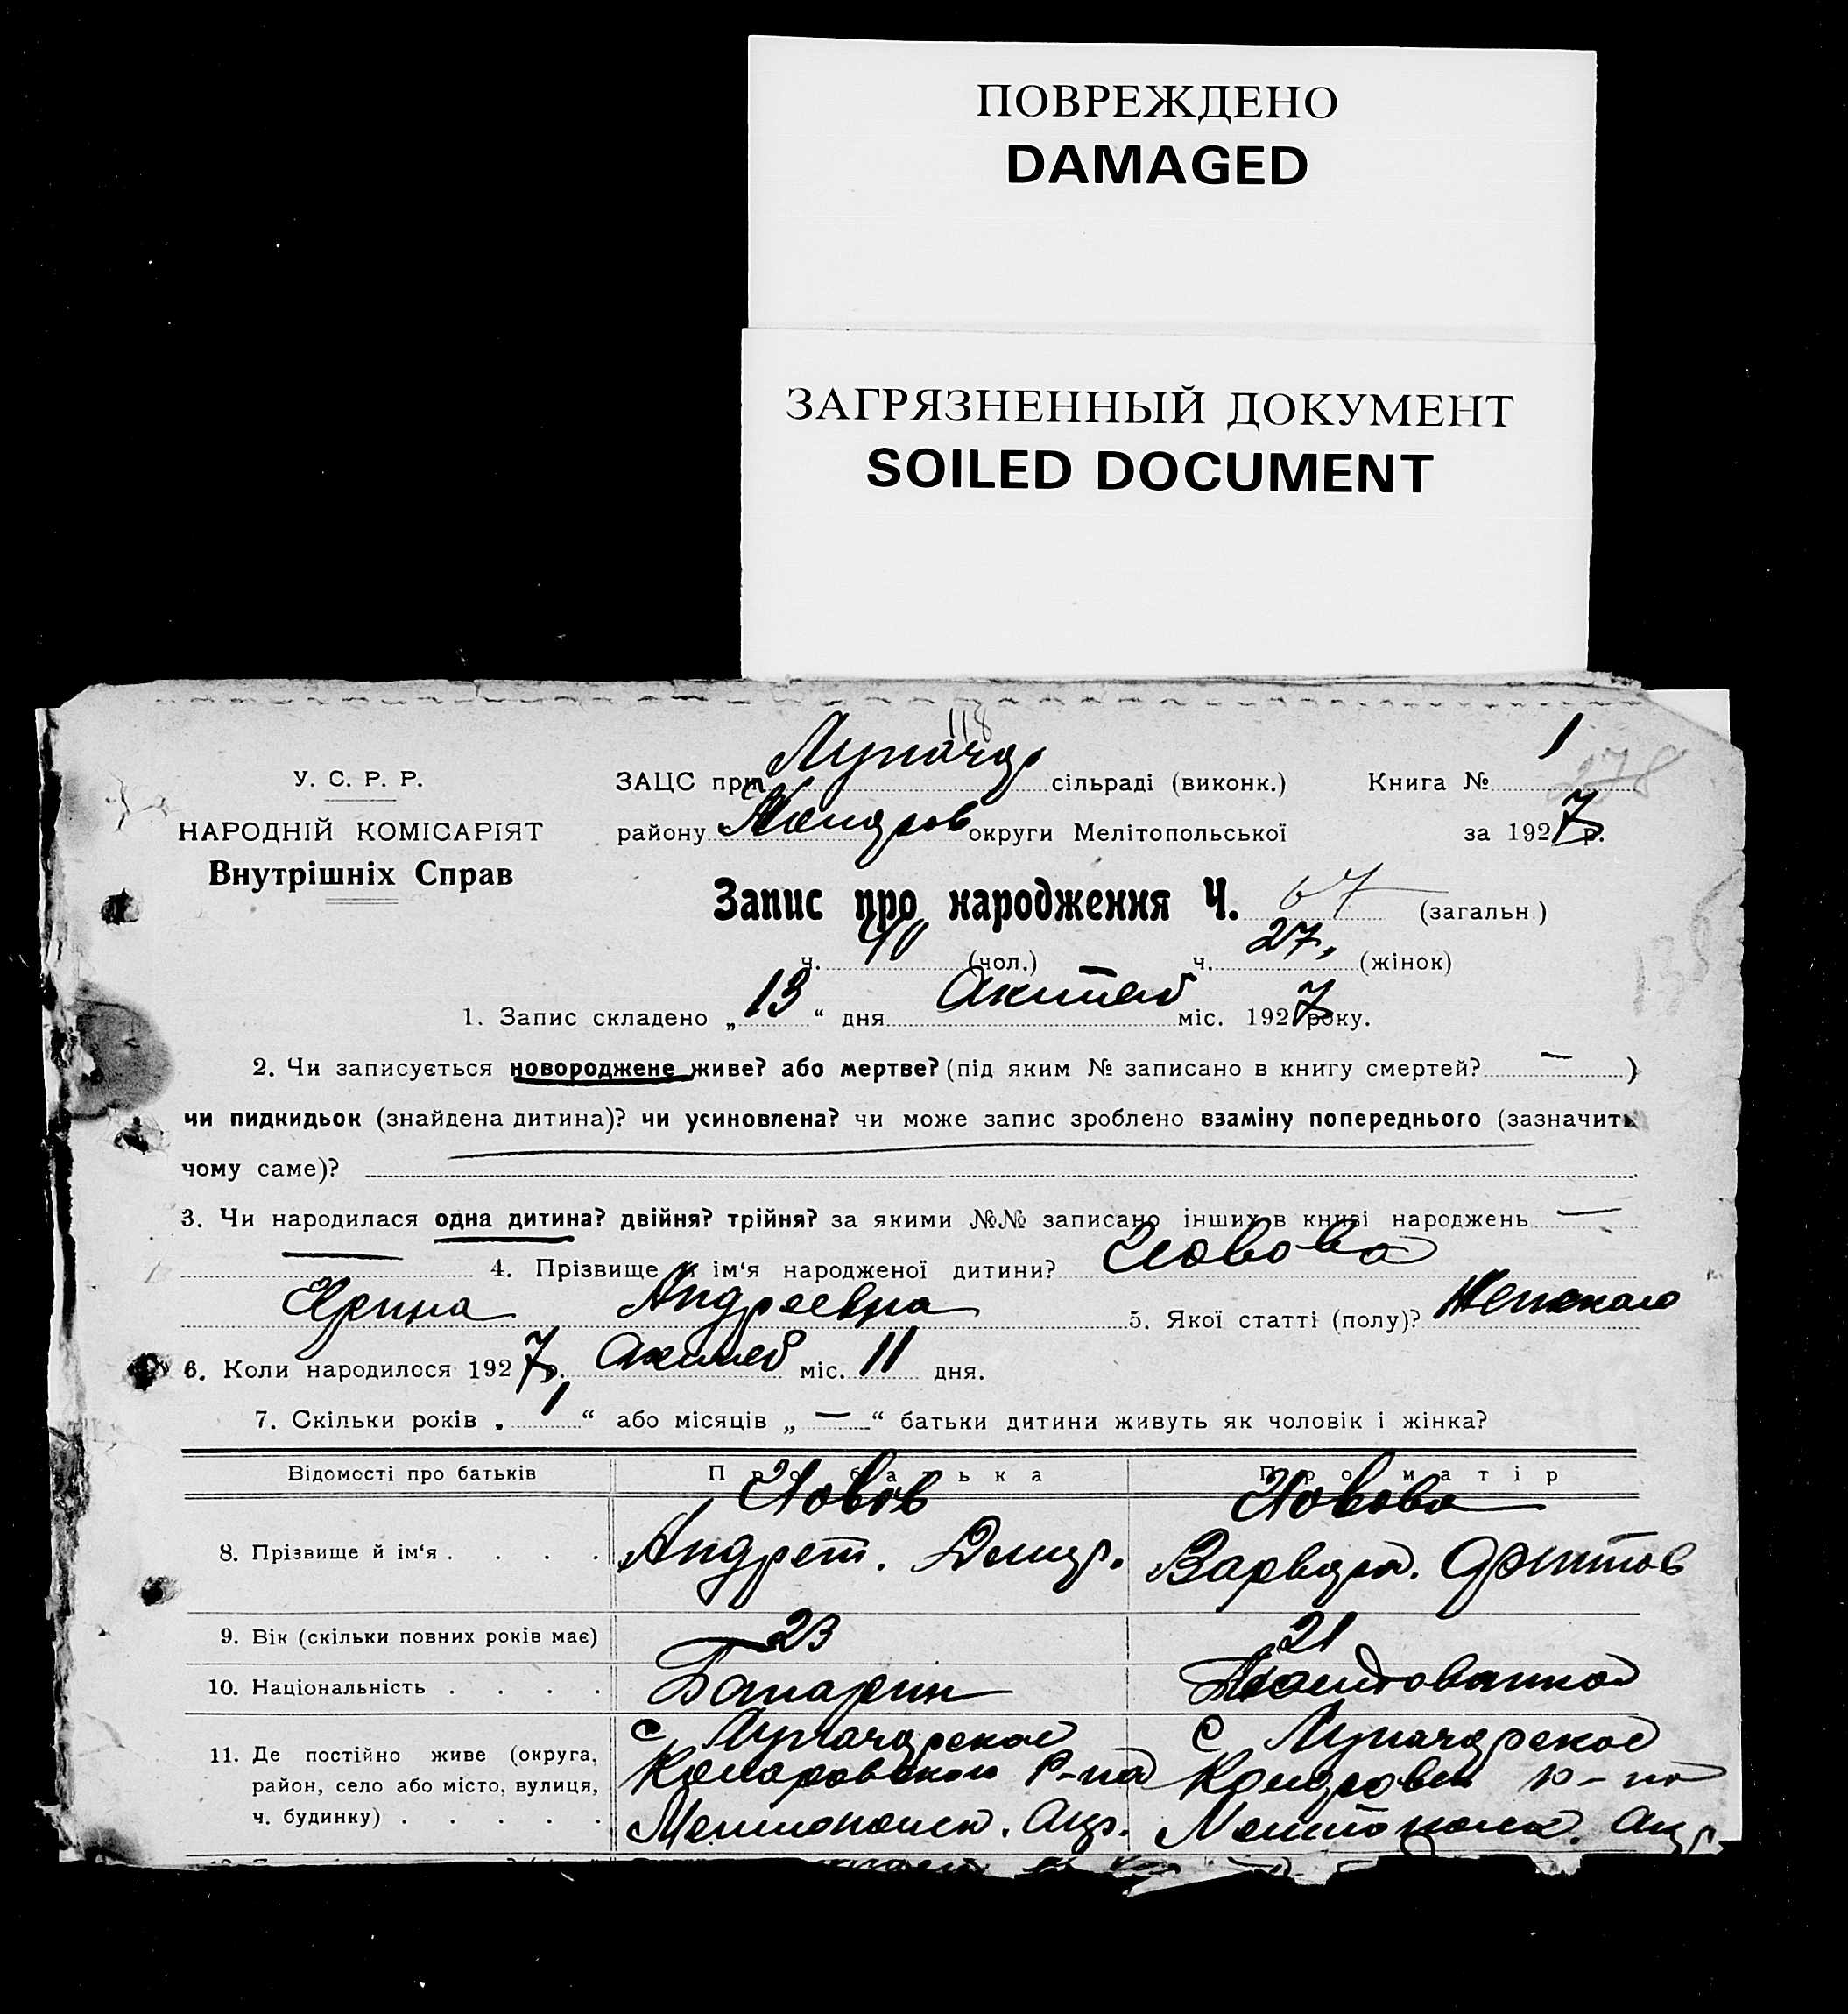 ПОВРЕЖДЕНО
DAMAGED
ЗАГРЯЗНЕННЫЙ ДОКУМЕНТ
SOILED DOCUMENT
118
У. С. Р. Р.
НАРОДНІЙ КОМІСАРІЯТ
Внутрішніх Справ
ЗАЦС при Луначар сільраді (виконк.) Книга № 1
278
району округи Мелітопольської за 1927 р.
Запис про народження Ч. 67 (загальн.)
ч. 40 (чол.) ч. 27, (жінок)
1. Запис складено „ 13 “ дня Октяб міс. 1927 року.
2. Чи записується новороджене живе? або мертве? (під яким № записано в книгу смертей? — )
чи пидкидьок (знайдена дитина)? чи усиновлена? чи може запис зроблено взаміну попереднього (зазначить
чому саме)?
3. Чи народилася одна дитина? двійня? трійня? за якими №№ записано інших в книзі народжень —
— 4. Прізвище й ім‘я народженої дитини?
Ирина Андреевна 5. Якої статті (полу)? Женскаго
6. Коли народилося 1927 р. Октяб міс. 11 дня.
7. Скільки років „ 1 “ або місяців „ — “ батьки дитини живуть як чоловік і жінка?
Відомості про батьків Про батька Про матір
8. Прізвище й ім‘я . . . . Андрей. Дмитр. Варвара.
9. Вік (скільки повних років має) 23 21
10. Національність . . . . Болгарин Молдованка
11. Де постійно живе (округа, с Луначарское с Луначарское
район, село або місто, вулиця, Р-на р-на
ч. будинку) . . . . . Мелитопольск. Окр. Мелитопольск. Окр.